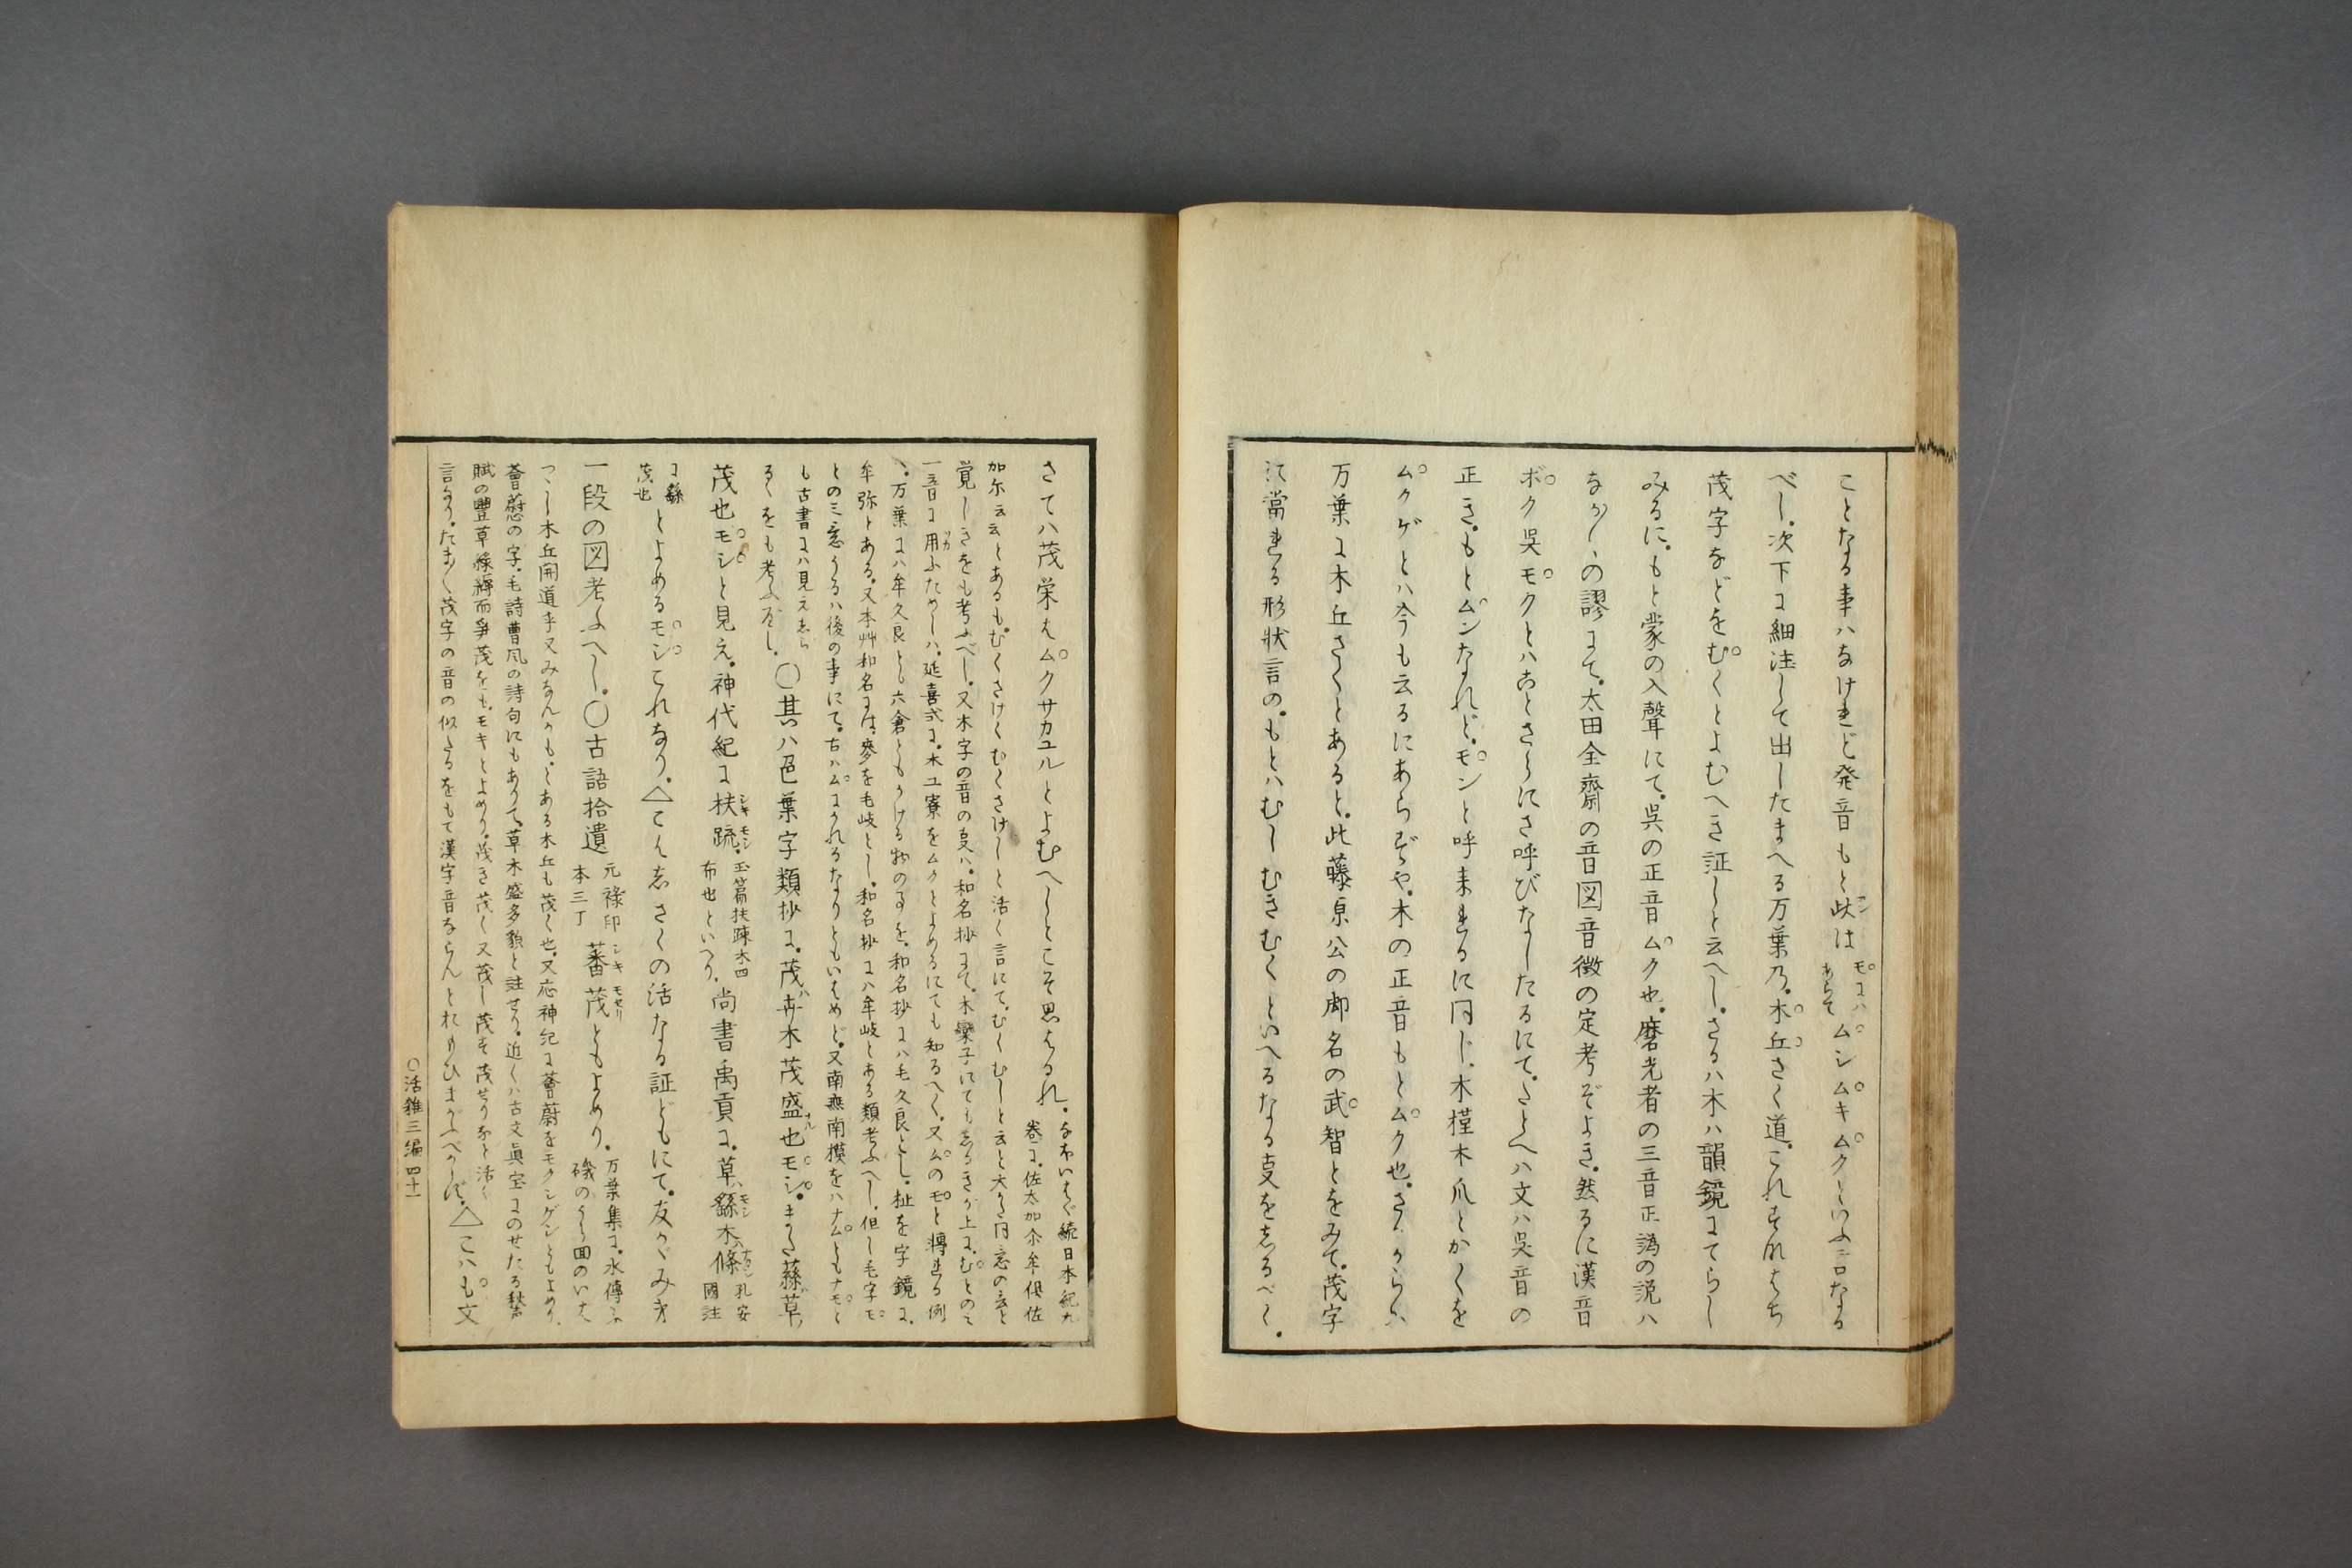 ことなる事ハなけれど発音もと此は モにハあらで ムシムキムクといふ言なる
べし。次下に細注して出したまへる万葉乃。木丘さく道。これすなはち
茂字などをむくとよむへき証しと云へし。さるハ木ハ韻鏡にてらし
みるに。もと蒙の入聲にて。呉の正音ムク也。磨光者の三音正譌の説ハ
なか〳〵の謬にて。太田全齋の音図音徴の定考ぞよき。然るに漢音
ボク呉モクとハことさらにさ呼びなしたるにて。たとへハ文ハ呉音の
正き。もとムンなれど。モンと呼来れるに同じ。木槿木爪とかくを
ムクゲとハ今も云るにあらずや。木の正音もとムク也。さるからハ
万葉に木丘さくとあると。此藤原公の御名の武智とをみて。茂字
に當れる形状言の。もとハむしむきむくといへるなる㕝をしるべし。
さてハ茂栄はムクサカユルとよむへしとこそ思はるれ。なほいはゞ続日本紀九
巻に。佐太加尓牟倶佐
加尓云云とあるも。むくさけくむくさけしと活く言にて。むくむしと云と大かた同意の言と
覚しきをも考ふべし。又木字の音の㕝ハ。和名抄にて。木欒子にてもしるきか上に。むとのミ
一言に用ふためしハ。延喜式に。木工寮をムクとよめるにても知るへく。又ムのモと轉れる例
ハ。万葉にハ牟久良とも六倉ともかける物の名を。和名抄にハ毛久良とし。㭰を字鏡に。
牟弥とある。又本艸和名には。蔘を毛岐とし。和名抄にハ牟岐とある類考ふへし。但し毛字モ
との三意うるハ後の事にて。古ハムにかれるなりともいはめど。又南無南摸をハナムともナモと
も古書にハ見えしら
るゝをも考ふべし。〇其ハ色葉字類抄に。茂 卉木茂盛也モシ。また蘨草
茂也モシと見え。神代紀に扶疏。玉篇扶疎木四布也といへり。尚書禹貢に。草蘨木條 孔安國注
に蘨
茂也とよめるモシこれなり。△こはしさくの活なる証どもにて。友かゞみ才
一段の図考ふへし。〇古語拾遺 元祿印本三丁 蕃茂ともよめり。万葉集に。水傳ふ
磯のうら回のいは
つゝし木丘開道乎又みなんかも。とある木丘も茂く也。又応神記に薈蔚をモクシゲシともよめり。
薈蔚の字。毛詩曹風の詩句にもありて。草木盛多貌と註せり。近くハ古文眞宝にのせたる秋声
賦の豐草綠縟而爭茂をも。モキとよめり。茂き茂く又茂し茂き茂せりなと活く
言なり。たま〳〵茂字の音の似たるをもて漢字音ならんとおもひまがふべからず。△こハも。文
〇活雜三編 四十一